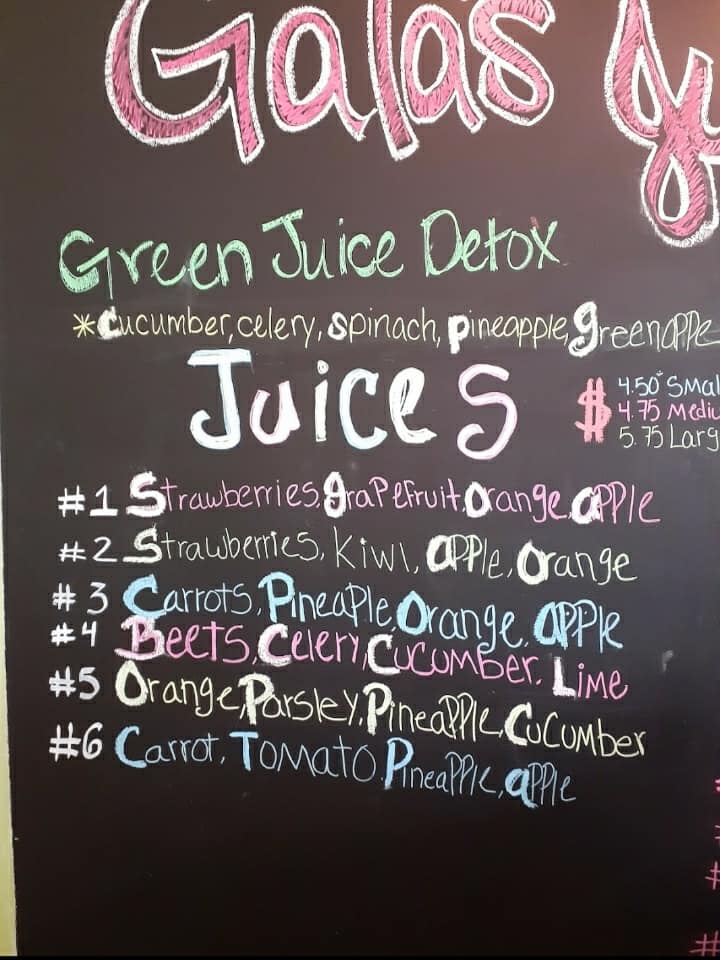 Galas
Green Juice Detox
*cucumber, celery, spinach, pineapple, green apple
Juices
$ 4.50 Smal
4.75 Mediu
5.75 Larg
#1 Strawberries, grapefruit, Orange, apple
#2 Strawberries, Kiwi, apple, Orange
#3 Carrots, Pineaple, Orange, apple
#4 Beets, Celery, Cucumber, Lime
#5 Orange, Parsley, Pineapple, Cucumber
#6 Carrot, Tomato, Pineapple, apple